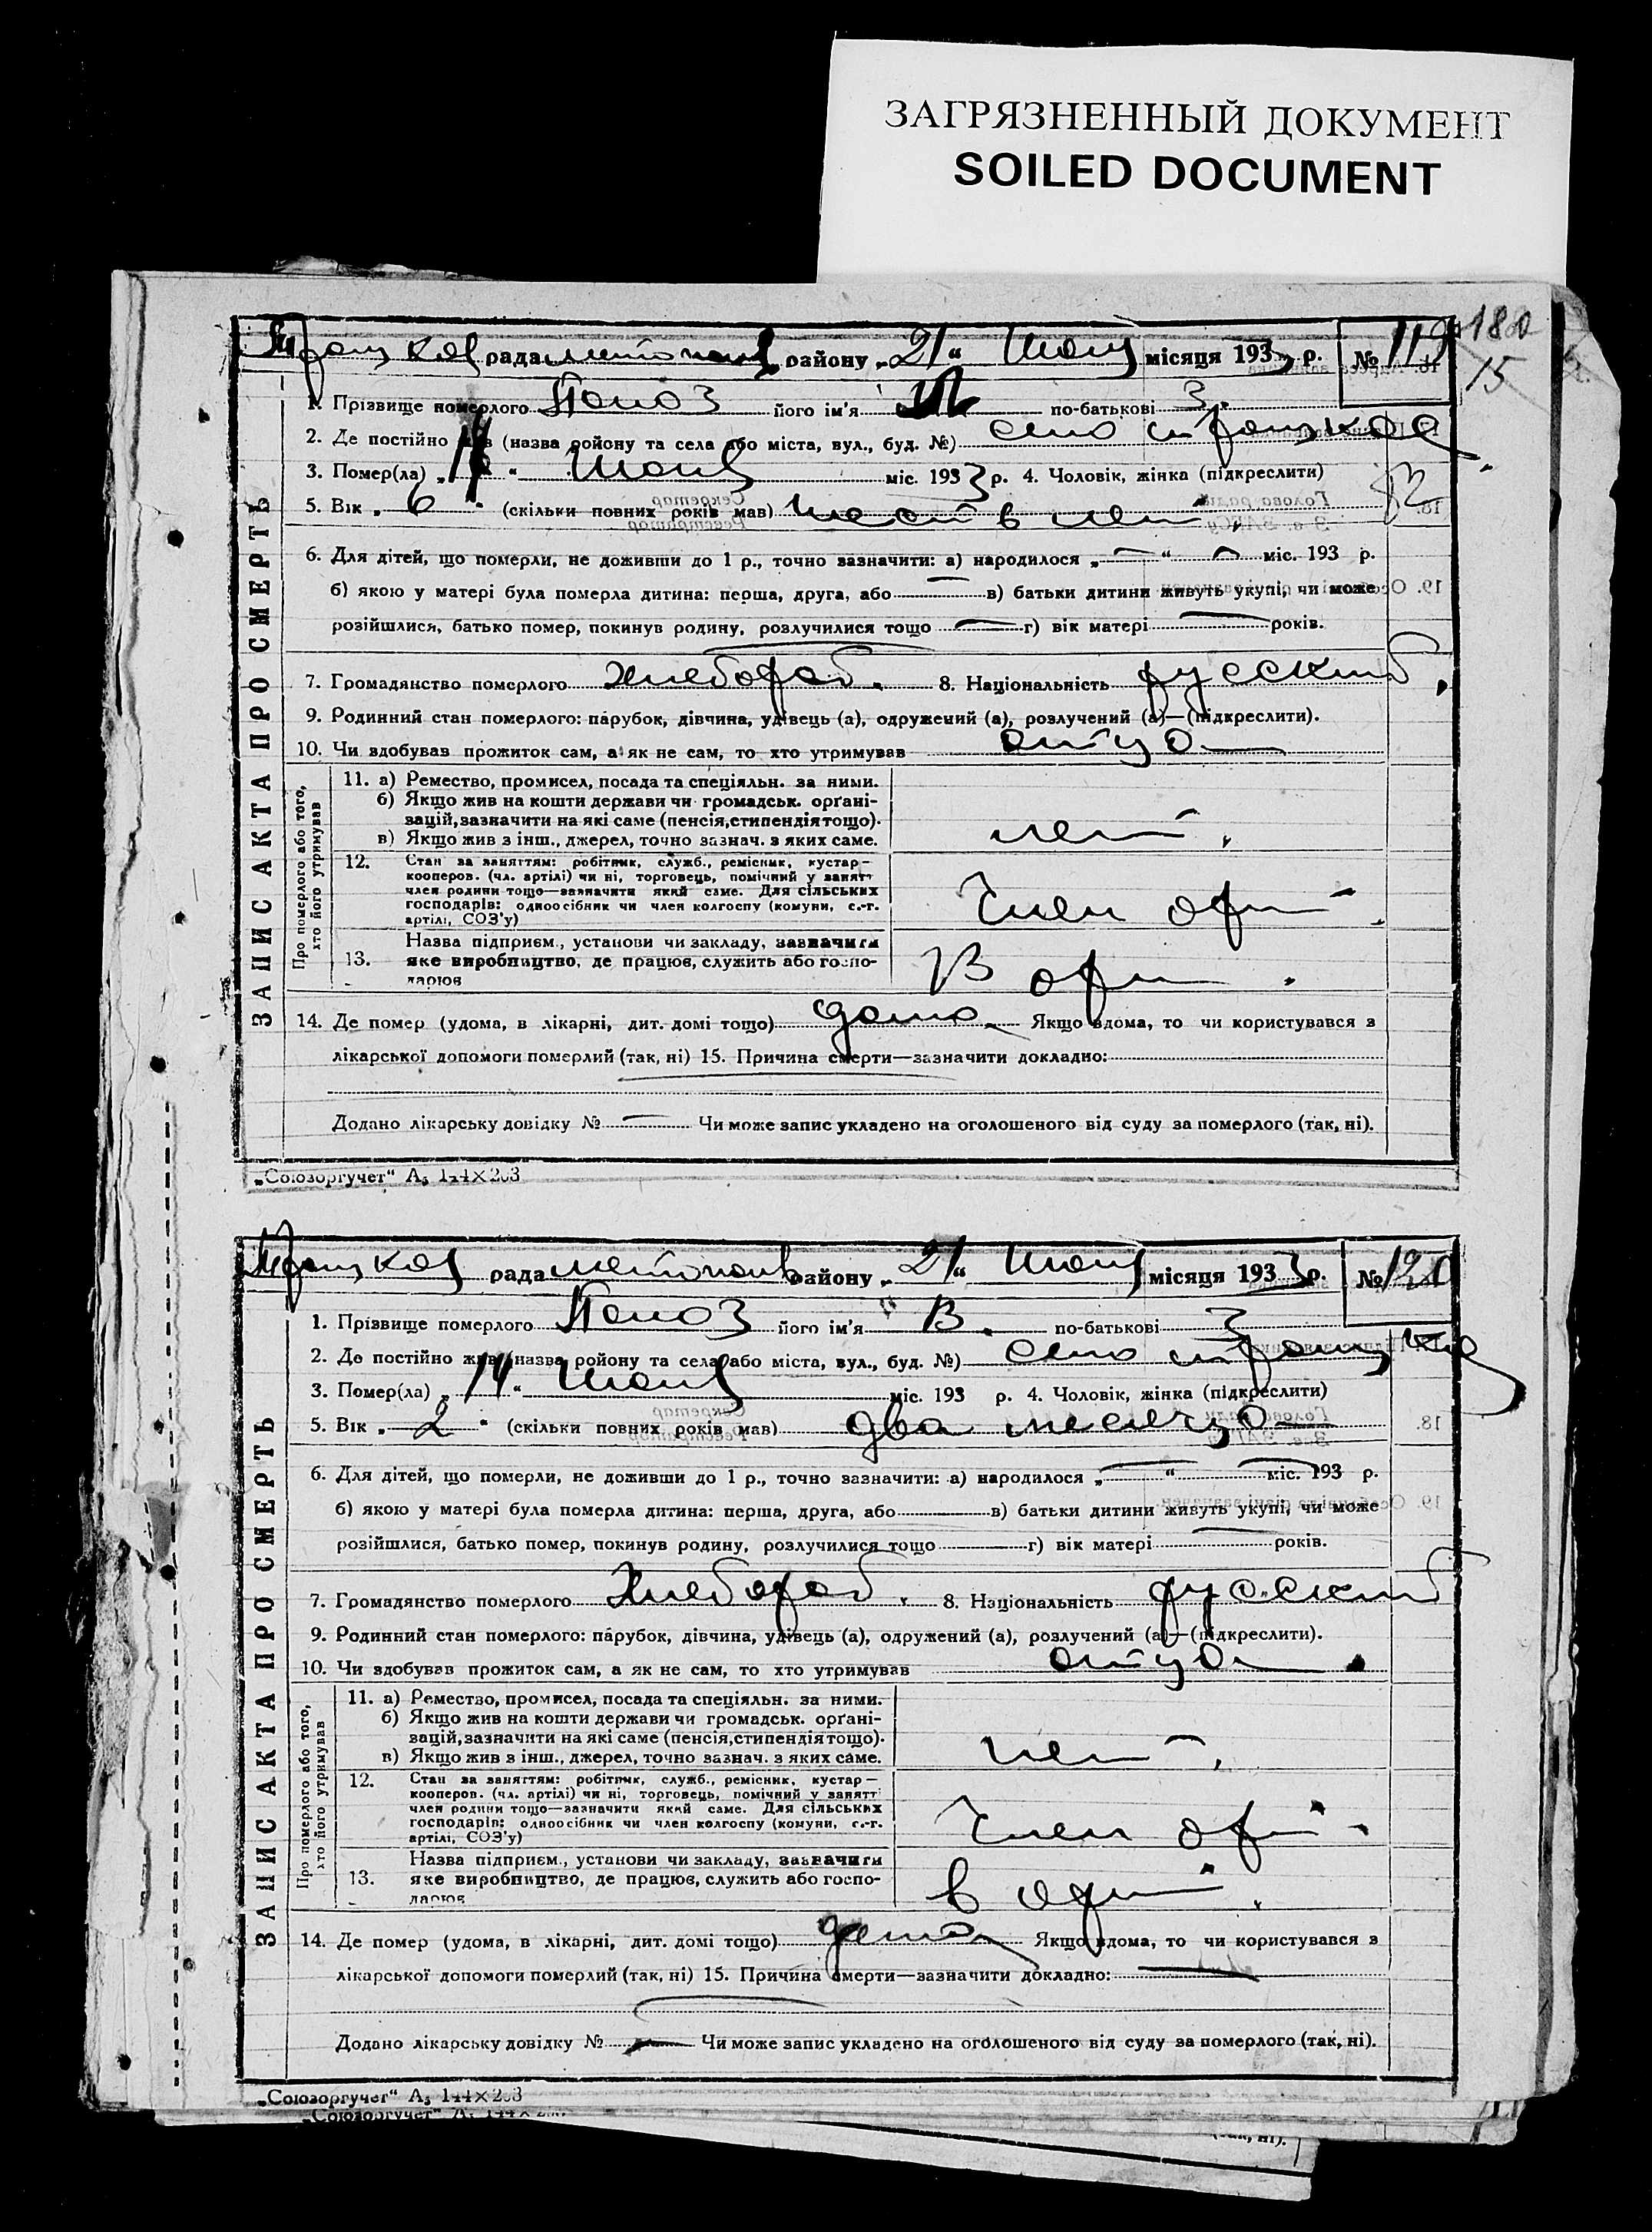 ЗАГРЯЗНЕННЫЙ ДОКУМЕНТ
SOILED DOCUMENT
180
15
ЗАПИС АКТА ПРО СМЕРТЬ
рада району „21“ місяця 1933 р. № 119
1. Прізвище померлого його ім'я по-батькові З.
2. Де постійно жив (назва ройону та села або міста, вул., буд. №) село
3. Помер(ла) міс. 1933 р. 4. Чоловік, жінка (підкреслити)
5. Вік „6“ (скільки повних років мав) шесть лет
6. Для дітей, що померли, не доживши до 1 р., точно зазначити: а) народилося „—“ — міс. 193 р.
б) якою у матері була померла дитина: перша, друга, або — в) батьки дитини живуть укупі, чи може
розійшлися, батько помер, покинув родину, розлучилися тощо — г) вік матері — років.
7. Громадянство померлого хлебороб. 8. Національність русский
9. Родинний стан померлого: парубок, дівчина, удівець (а), одружений (а), розлучений (а)—(підкреслити).
10. Чи здобував прожиток сам, а як не сам, то хто утримував отца
Про померлого або того, хто його утримував
11. а) Ремество, промисел, посада та спеціяльн. за ними.
б) Якщо жив на кошти держави чи громадськ. орґані-
зацій, зазначити на які саме (пенсія, стипендія тощо).
в) Якщо жив з інш., джерел, точно зазнач. з яких саме.
нет.
12. Стан за заняттям: робітник, служб., ремісник, кустар—
кооперов. (чл. артілі) чи ні, торговець, помічний у занятт
член родини тощо—зазначити який саме. Для сільських
господарів: одноосібник чи член колгоспу (комуни, с.-г.
артілі, СОЗ'у)
Член арт.
13. Назва підприєм., установи чи закладу, зазначити
яке виробництво, де працюв, служить або госпо-
дарюв
В арт.
14. Де помер (удома, в лікарні, дит. домі тощо) дома Якщо вдома, то чи користувався з
лікарської допомоги померлий (так, ні) 15. Причина смерти—зазначити докладно:
Додано лікарську довідку № — Чи може запис укладено на оголошеного від суду за померлого (так, ні).
„Союзоргучет“ А₅ 144×203
ЗАПИС АКТА ПРО СМЕРТЬ
рада району „21“ місяця 1933 р. № 120
1. Прізвище померлого його ім'я В. по-батькові З
2. Де постійно жив (назва ройону та села або міста, вул., буд. №) село
3. Помер(ла) „14“ міс. 193 р. 4. Чоловік, жінка (підкреслити)
5. Вік „2“ (скільки повних років мав) два месяца
6. Для дітей, що померли, не доживши до 1 р., точно зазначити: а) народилося „—“ — міс. 193 р.
б) якою у матері була померла дитина: перша, друга, або в) батьки дитини живуть укупі, чи може
розійшлися, батько помер, покинув родину, розлучилися тощо г) вік матері — років.
7. Громадянство померлого Хлебороб. 8. Національність русский
9. Родинний стан померлого: парубок, дівчина, удівець (а), одружений (а), розлучений (а)—(підкреслити).
10. Чи здобував прожиток сам, а як не сам, то хто утримував отца
Про померлого або того, хто його утримував
11. а) Ремество, промисел, посада та спеціяльн. за ними.
б) Якщо жив на кошти держави чи громадськ. орґані-
зацій, зазначити на які саме (пенсія, стипендія тощо).
в) Якщо жив з інш., джерел, точно зазнач. з яких саме.
нет.
12. Стан за заняттям: робітник, служб., ремісник, кустар—
кооперов. (чл. артілі) чи ні, торговець, помічний у занятт
член родини тощо—зазначити який саме. Для сільських
господарів: одноосібник чи член колгоспу (комуни, с.-г.
артілі, СОЗ'у)
Член арт.
13. Назва підприєм., установи чи закладу, зазначити
яке виробництво, де працюв, служить або госпо-
дарюв
в арт.
14. Де помер (удома, в лікарні, дит. домі тощо) дома Якщо вдома, то чи користувався з
лікарської допомоги померлий (так, ні) 15. Причина смерти—зазначити докладно: —
Додано лікарську довідку № — Чи може запис укладено на оголошеного від суду за померлого (так, ні).
„Союзоргучет“ А₅ 144×203
„Союзоргучет“